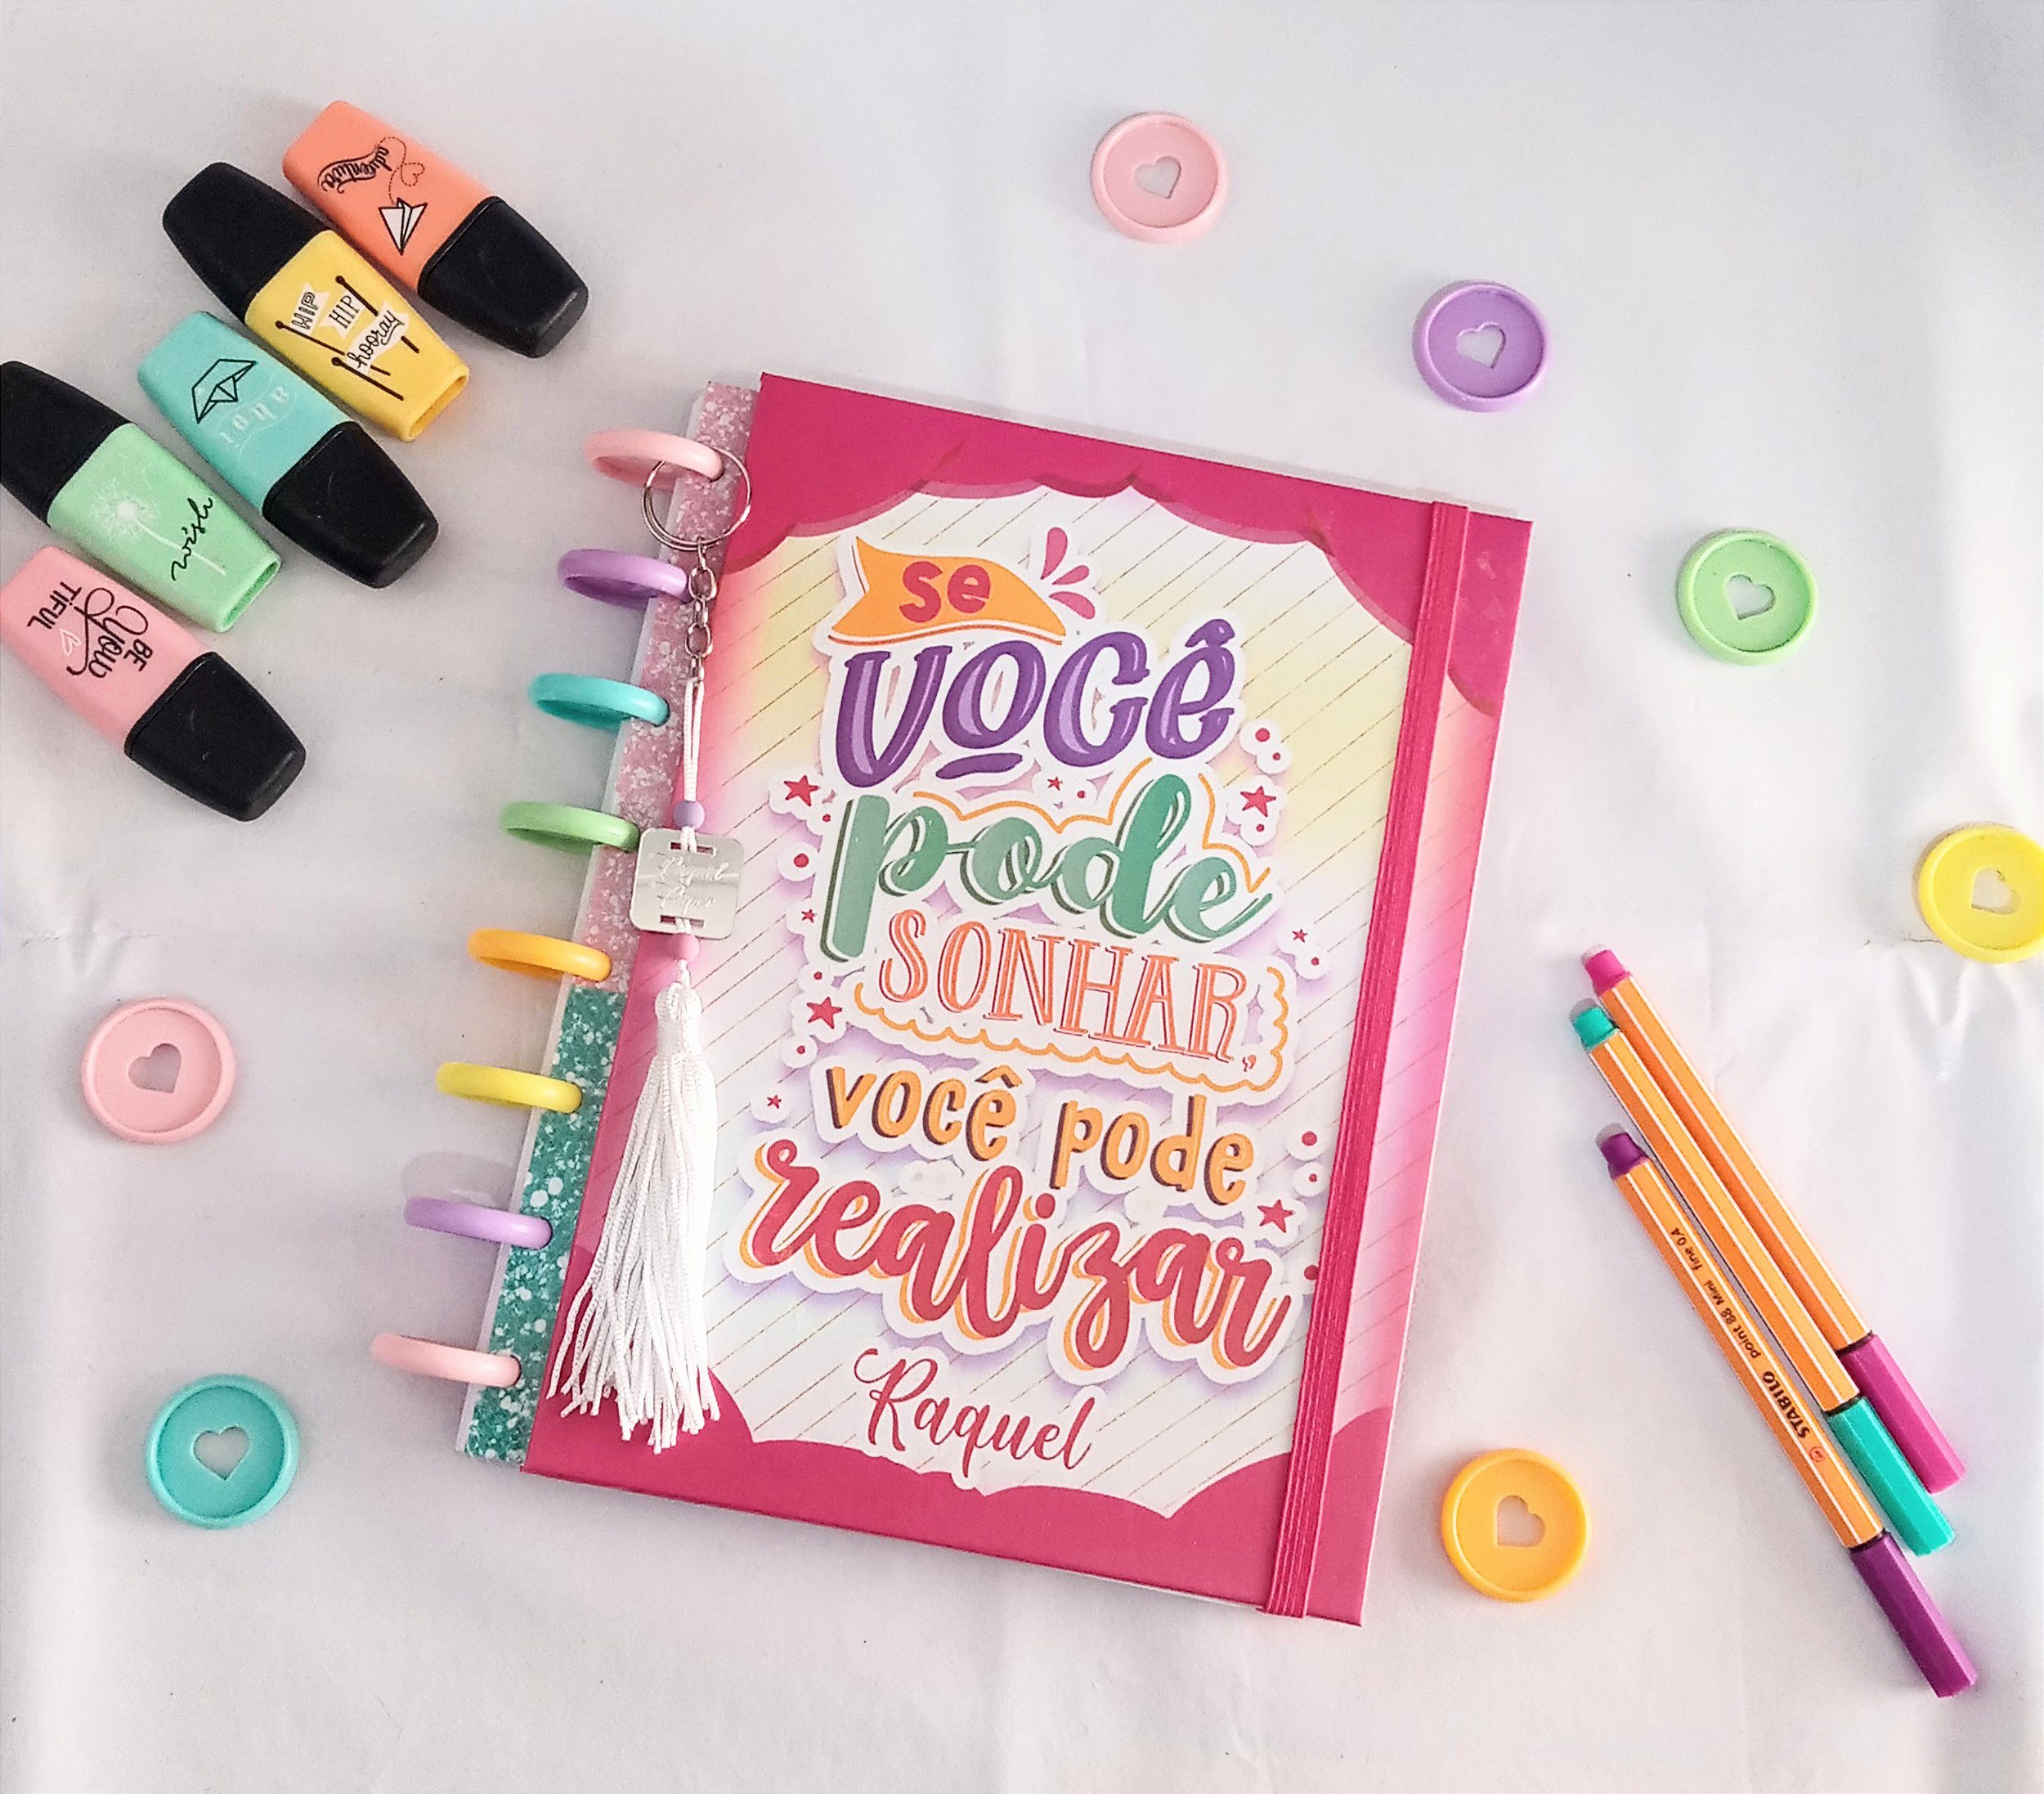 adventure
HIP
HIP
hooray
ahoi
wish
BE
you
TIFUL
se
você
pode
SONHAR,
você pode
realizar
Raquel
STABILO point 88 Mini fine 0.4